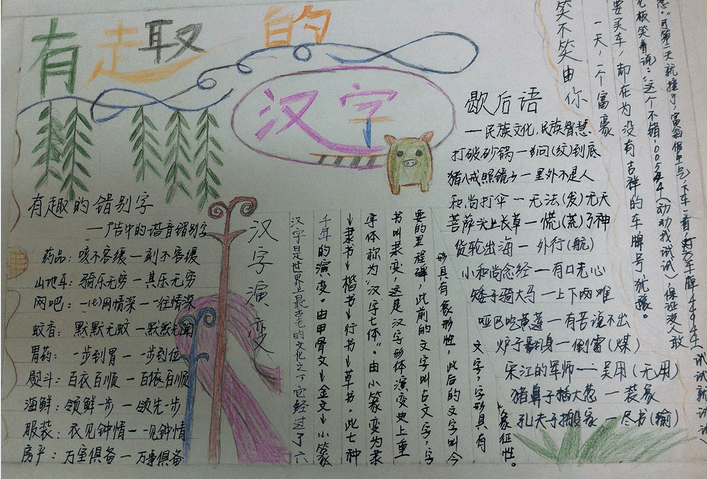 有趣的
汉字
有趣的错别字
—广告中的谐音错别字
药品：咳不容缓—刻不容缓
山地车：骑乐无穷—其乐无穷
网吧：一(e)网情深—往情深
蚊香：默默无蚊—默默无闻
胃药：一步到胃—一步到位
熨斗：百衣百顺—百依百顺
海鲜：领鲜一步—领先一步
服装：衣见钟情—一见钟情
房产：万室俱备—万事俱备
汉字演变
汉字是世界上最古老的文化之一，它经过了六
千年的演变。由甲骨文→金文→小篆
→隶书→楷书→行书→草书，此七种
字体称为“汉字七体”。由小篆变为隶
书叫隶变。这是汉字形体演变史上重
要的里程碑，此前的文字叫古文字，字
形具有象形性，此后的文字叫今
文字，字形具有
象征性。
歇后语
—民族文化，民族智慧
打破砂锅—问(纹)到底
猪八戒照镜子—里外不是人
和尚打伞—无法(发)无天
菩萨头上长草—慌(荒)了神
货轮出海—外行(航)
小和尚念经—有口无心
矮子骑大马—上下两难
哑巴吃黄莲—有苦说不出
炉子翻身—倒霉(煤)
宋江的军师—吴用(无用)
猪鼻子插大葱—装象
孔夫子搬家—尽书(输)
笑不笑由你
一天，一个富豪
要买车，却在为没有吉祥的车牌号犹豫。